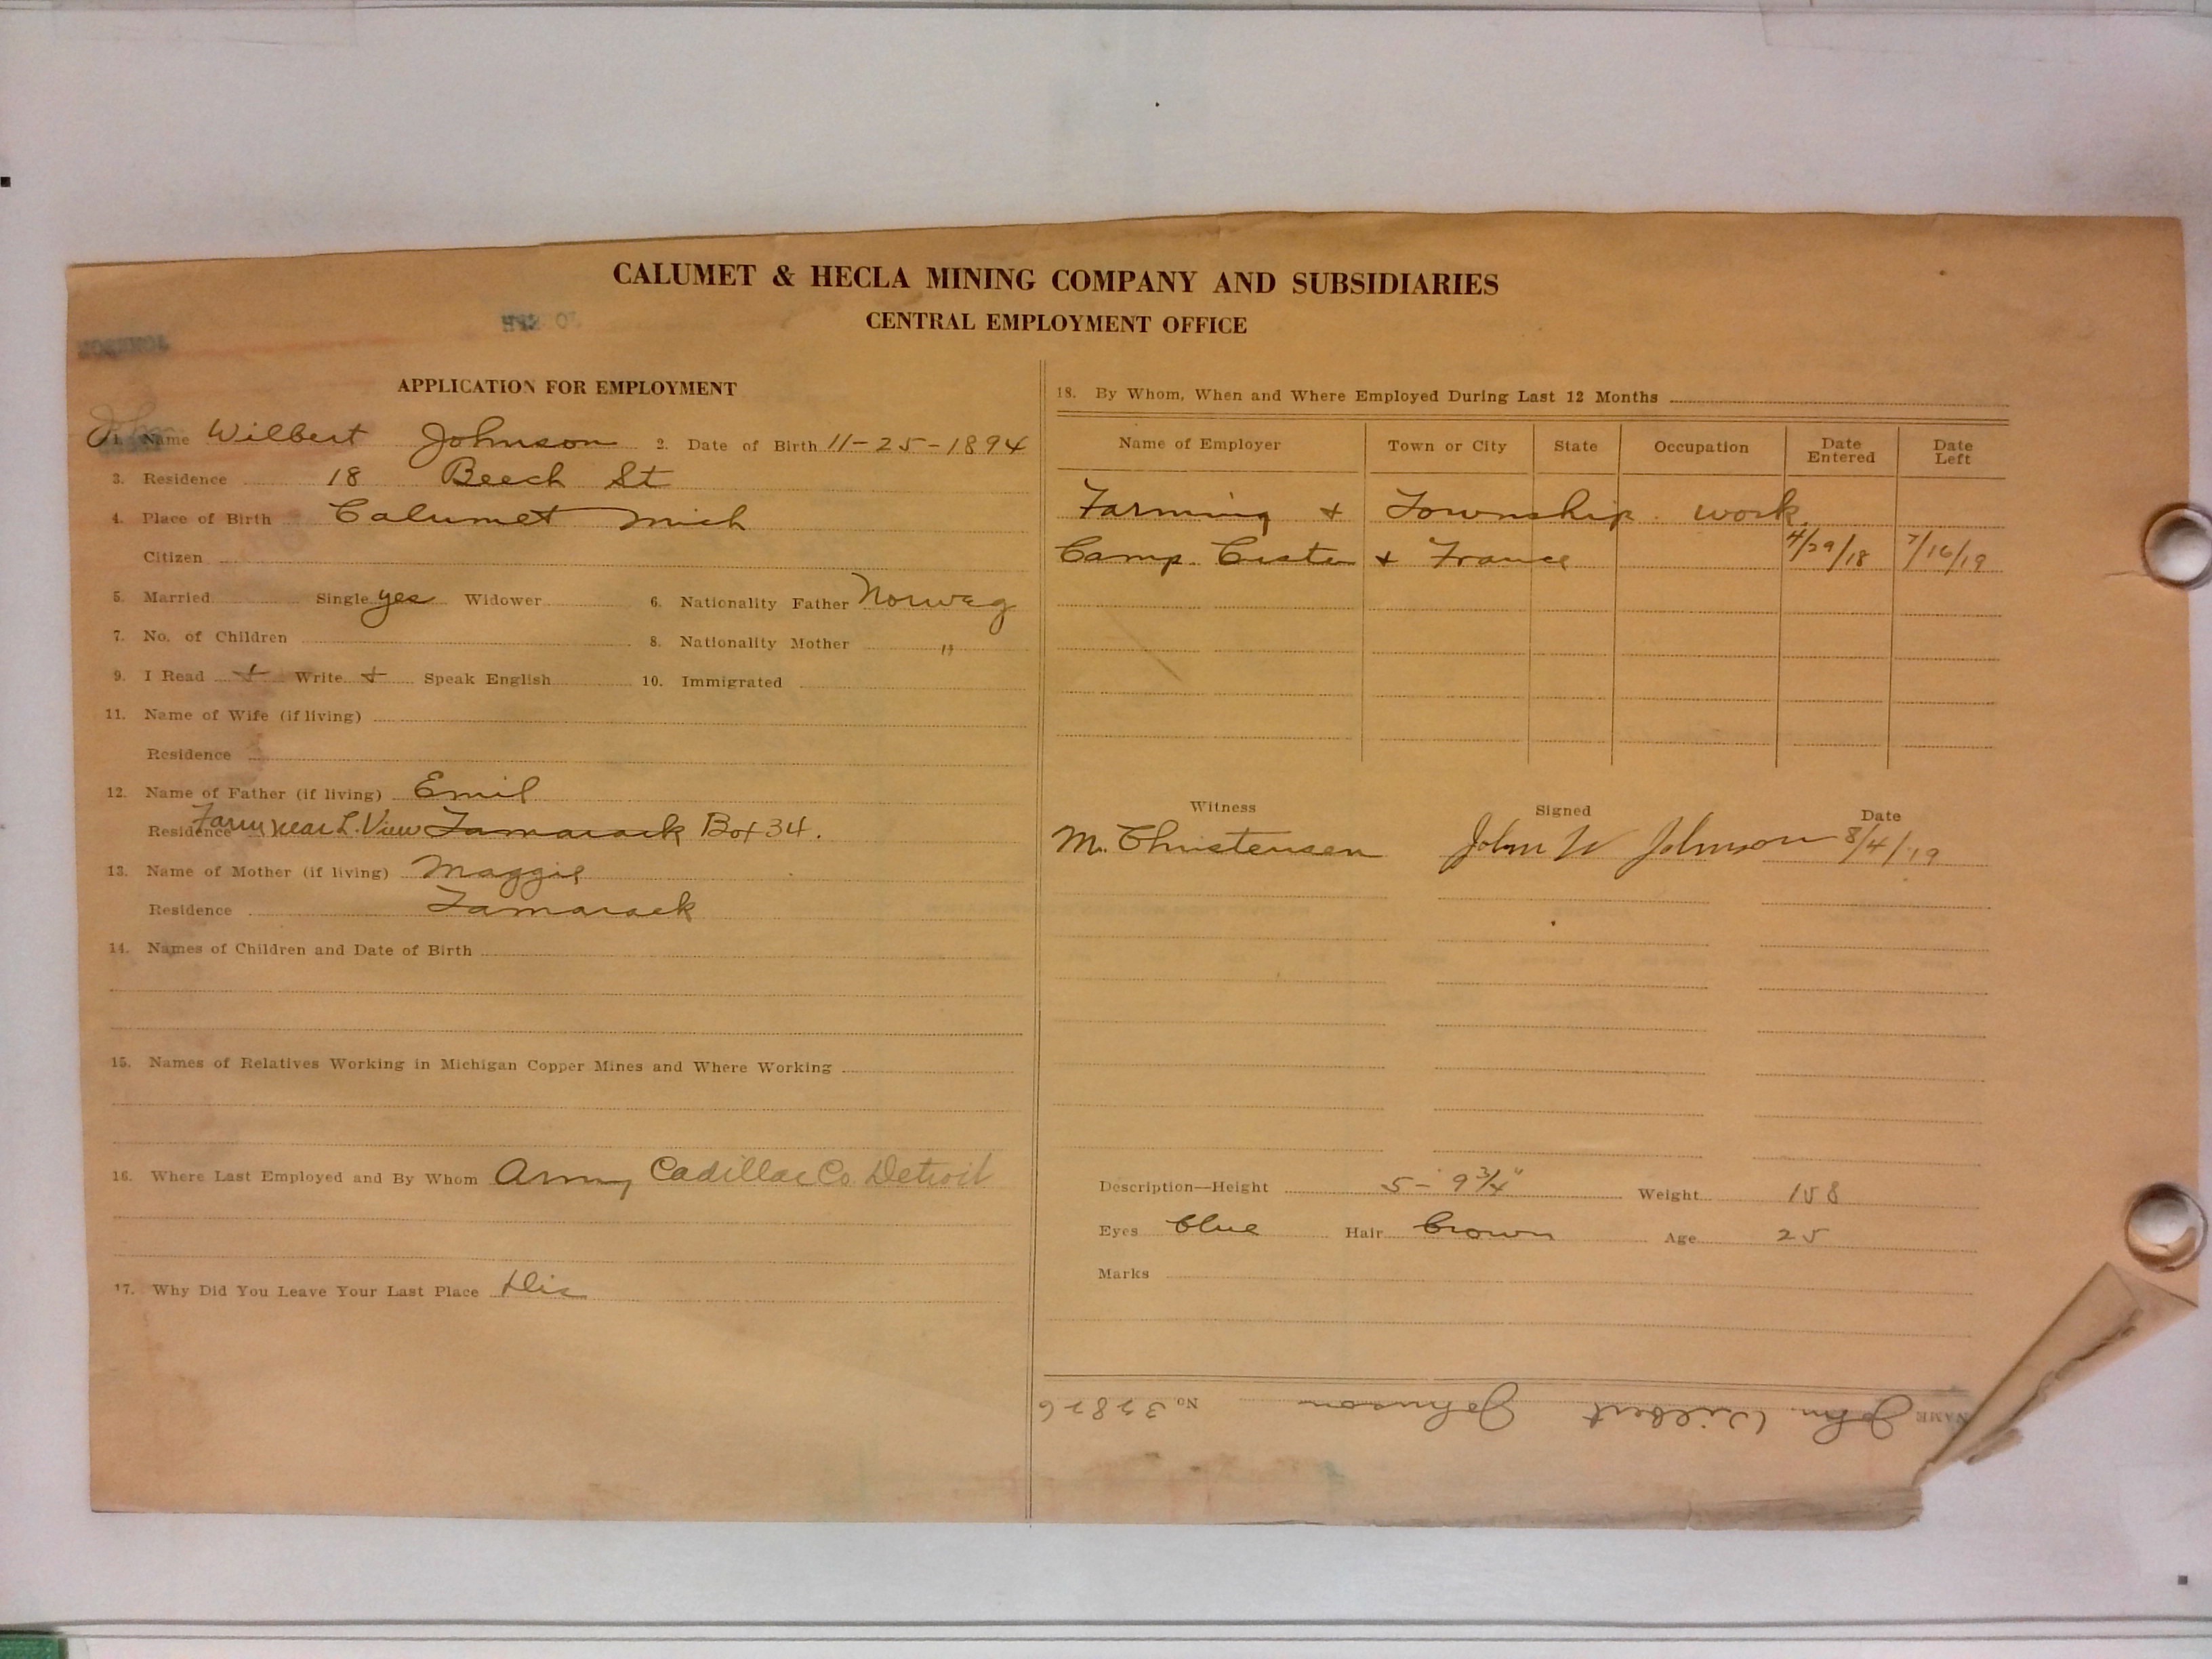 CALUMET & HECLA MINING COMPANY AND SUBSIDIARIES
CENTRAL EMPLOYMENT OFFICE
APPLICATION FOR EMPLOYMENT
1. Name John Wilbert Johnson 2. Date of Birth 11-25-1894
3. Residence 18 Beech St
4. Place of Birth Calumet Mich
Citizen
5. Married Single yes Widower 6. Nationality Father Norweg
7. No. of Children 8. Nationality Mother "
9. I Read + Write + Speak English 10. Immigrated
11. Name of Wife (if living)
Residence
12. Name of Father (if living) Emil
Residence Farm near L. View Tamarack Box 34.
13. Name of Mother (if living) Maggie
Residence Tamarack
14. Names of Children and Date of Birth
15. Names of Relatives Working in Michigan Copper Mines and Where Working
16. Where Last Employed and By Whom Army Cadillac Co. Detroit
17. Why Did You Leave Your Last Place Dis
18. By Whom, When and Where Employed During Last 12 Months
Name of Employer Town or City State Occupation Date Entered Date Left
Farming + Township work.
Camp Custer + France 4/29/18 7/16/19
Witness Signed Date
M. Christensen John W Johnson 8/4/19
Description—Height 5-9 3/4" Weight 158
Eyes blue Hair brown Age 25
Marks
NAME John Wilbert Johnson No.